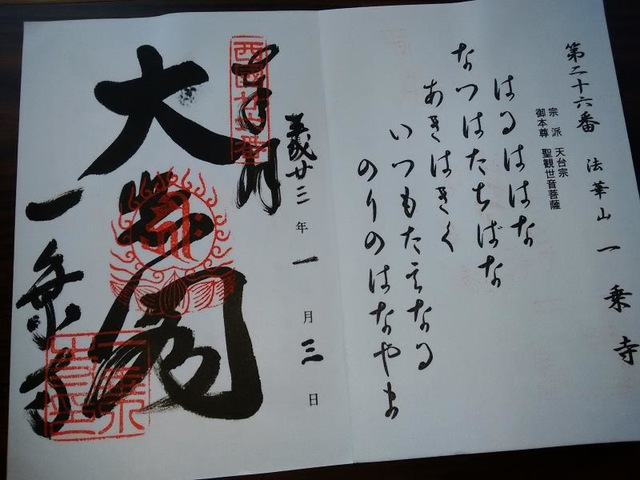 第二十六番 法華山 一乗寺
宗派 天台宗
御本尊 聖観世音菩薩
はるははな
なつはたちばな
あきはきく
いつもたえなる
のりのはなやま
平成廿三年一月三日
奉拝
西国廿六番
大悲閣
一乗寺